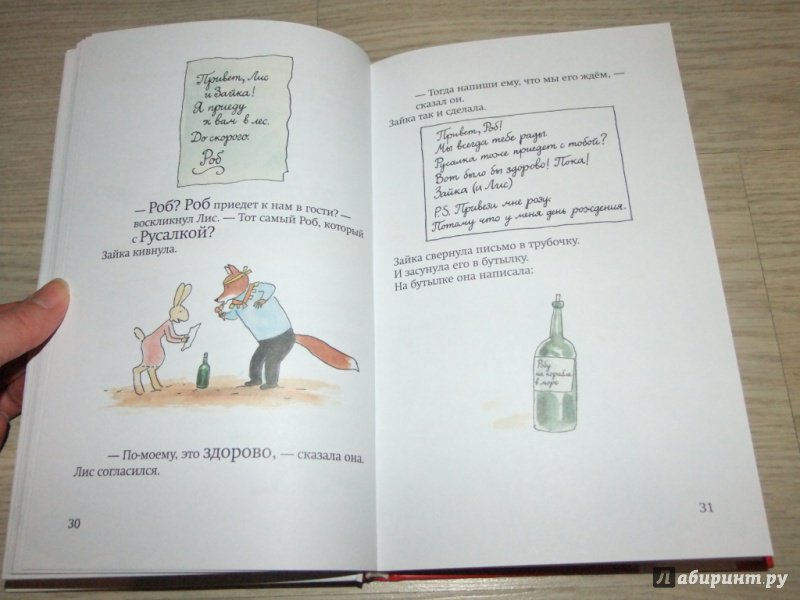 Привет, Лис
и Зайка!
Я приеду
к вам в лес.
До скорого.
Роб
— Роб? Роб приедет к нам в гости? —
воскликнул Лис. — Тот самый Роб, который
с Русалкой?
Зайка кивнула.
— По-моему, это здорово, — сказала она.
Лис согласился.
30
— Тогда напиши ему, что мы его ждём, —
сказал он.
Зайка так и сделала.
Привет, Роб!
Мы всегда тебе рады.
Русалка тоже приедет с тобой?
Вот было бы здорово! Пока!
Зайка (и Лис)
P.S. Привези мне розу.
Потому что у меня день рождения.
Зайка свернула письмо в трубочку.
И засунула его в бутылку.
На бутылке она написала:
Робу
на корабле
в море
31
Лабиринт.ру